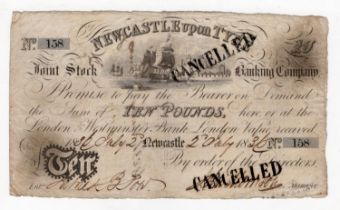 NEWCASTLE upon TYNE
No 158 CANCELLED
Joint Stock Banking Company
Promise to pay the Bearer on Demand
the Sum of TEN POUNDS, here or at the
London & Westminster Bank London Value received
Newcastle 2 July 1836 No 158
By order of the Directors.
Ten
CANCELLED
Manager